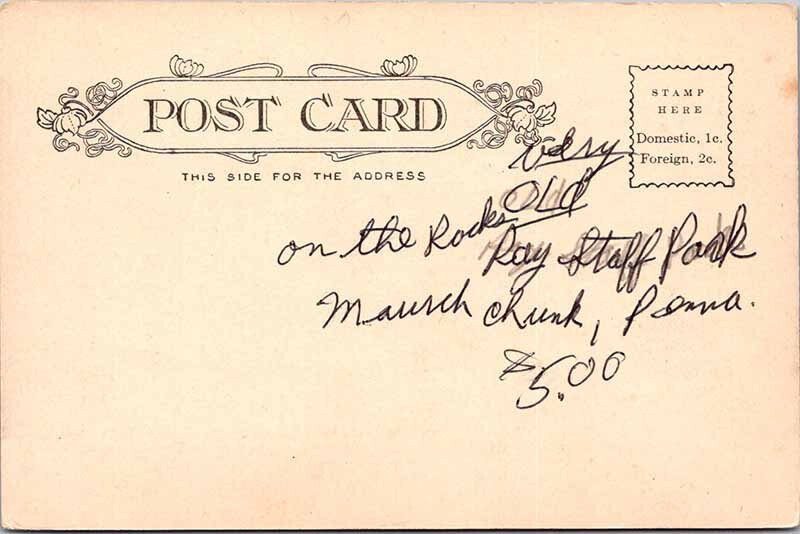 POST CARD
THIS SIDE FOR THE ADDRESS
STAMP
HERE
Domestic, 1c.
Foreign, 2c.
very
OLD
on the Rocks Ray Staff Park
Mausch Chunk, Penna.
$5.00